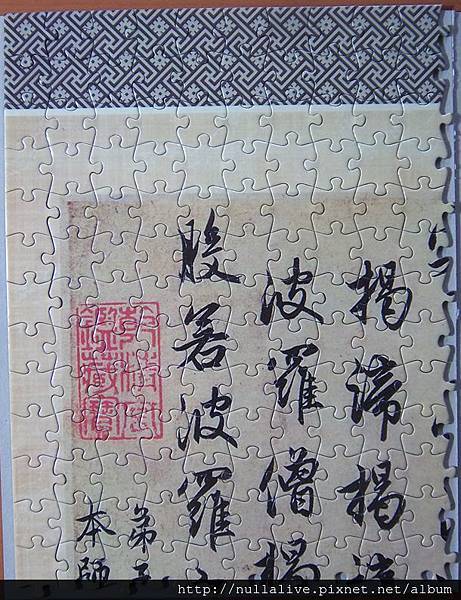 揭諦揭諦
波羅僧揭
般若波羅
弟子
本師
http://nullalive.pixnet.net/album